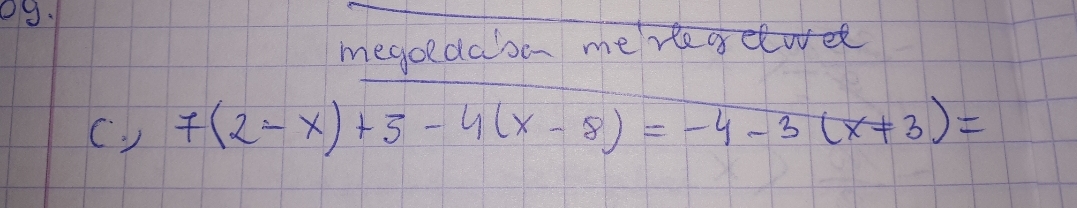 09.
megoldása mérlegelvvel
C.) 7(2-x)+5-4(x-8)=-4-3(x+3)=